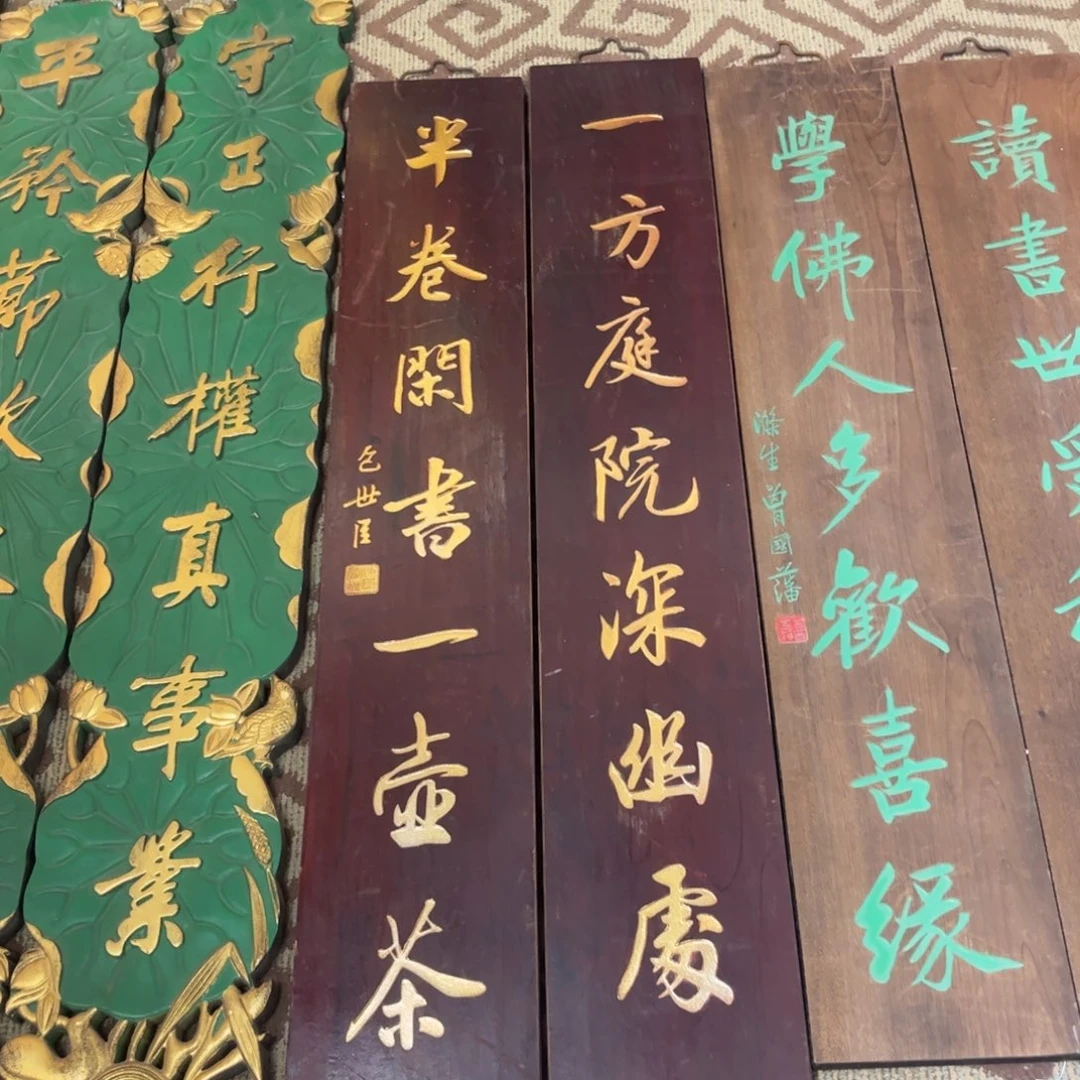 讀書世受
學佛人多歡喜緣
滌生曾國藩
一方庭院深幽處
半卷閑書一壺茶
包世臣
守正行權真事業
平矜